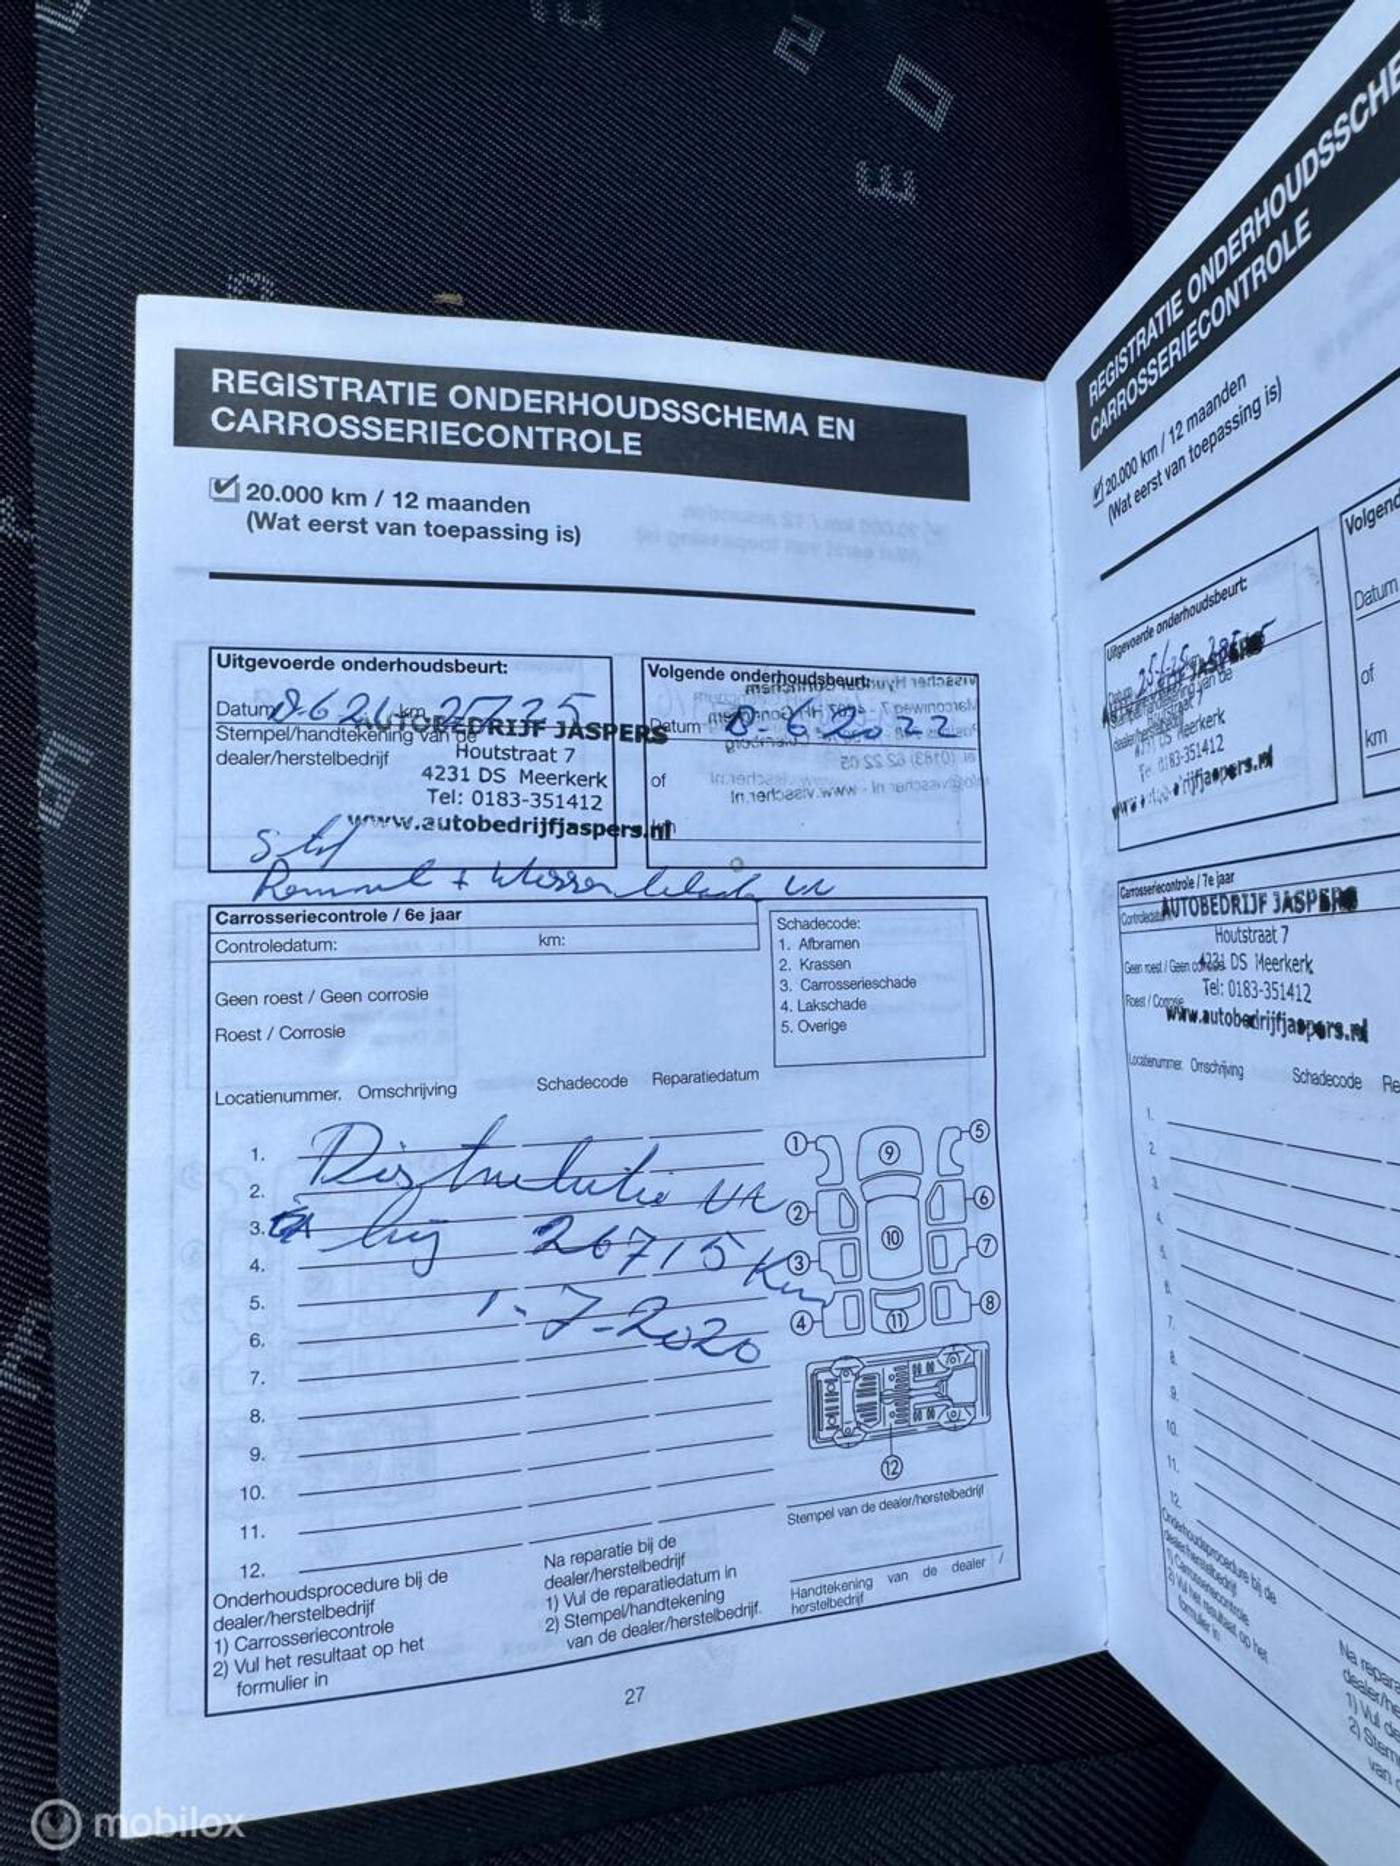 REGISTRATIE ONDERHOUDSSCHEMA EN
CARROSSERIECONTROLE
20.000 km / 12 maanden
(Wat eerst van toepassing is)
Uitgevoerde onderhoudsbeurt:
Datum 8-6 21 km
Stempel/handtekening van de
dealer/herstelbedrijf
AUTOBEDRIJF JASPERS
Houtstraat 7
4231 DS Meerkerk
Tel: 0183-351412
www.autobedrijfjaspers.nl
Volgende onderhoudsbeurt:
Datum 8-6 2022
of
km
Carrosseriecontrole / 6e jaar
Controledatum: km:
Geen roest / Geen corrosie
Roest / Corrosie
Schadecode:
1. Afbramen
2. Krassen
3. Carrosserieschade
4. Lakschade
5. Overige
Locatienummer. Omschrijving Schadecode Reparatiedatum
1.
2.
3.
4.
5.
6.
7.
8.
9.
10.
11.
12.
Distributie
bij 26715 Km
1-7-2020
1
2
3
4
5
6
7
8
9
10
11
12
Stempel van de dealer/herstelbedrijf
Handtekening van de dealer /
herstelbedrijf
Onderhoudsprocedure bij de
dealer/herstelbedrijf
1) Carrosseriecontrole
2) Vul het resultaat op het
formulier in
Na reparatie bij de
dealer/herstelbedrijf
1) Vul de reparatiedatum in
2) Stempel/handtekening
van de dealer/herstelbedrijf.
27
REGISTRATIE ONDERHOUDSSCHE
CARROSSERIECONTROLE
20.000 km / 12 maanden
(Wat eerst van toepassing is)
Uitgevoerde onderhoudsbeurt:
Datum
JASPERS
Houtstraat 7
Meerkerk
Tel: 0183-351412
Volgend
Datum
of
km
Carrosseriecontrole / 7e jaar
AUTOBEDRIJF JASPERS
Houtstraat 7
4231 DS Meerkerk
Tel: 0183-351412
www.autobedrijfjaspers.nl
Geen roest / Geen corrosie
Roest / Corrosie
Locatienummer. Omschrijving Schadecode Re
1.
2.
3.
4.
5.
6.
7.
8.
9.
10.
11.
12.
Onderhoudsprocedure bij de
dealer/herstelbedrijf
1) Carrosseriecontrole
2) Vul het resultaat op het
formulier in
Na repara
dealer/he
1) Vul de
2) Stem
van
mobilox